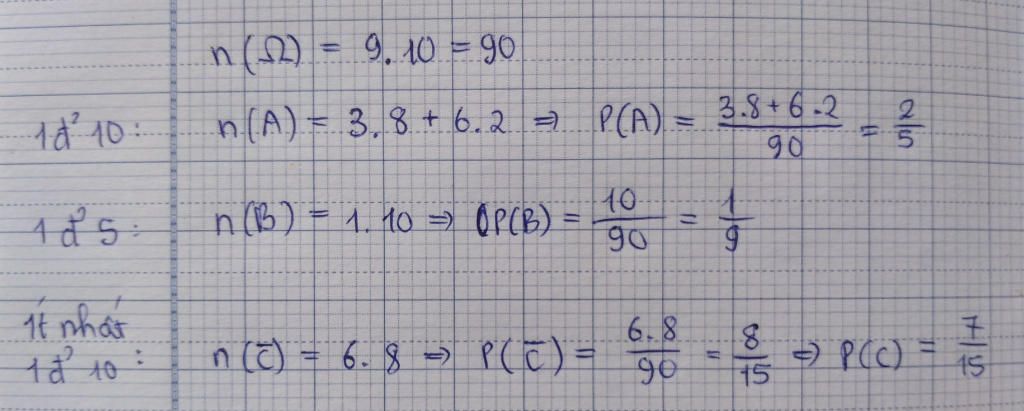 n(Ω) = 9.10 = 90
1đ' 10: n(A) = 3.8 + 6.2 ⇒ P(A) = (3.8 + 6.2)/90 = 2/5
1đ' 5: n(B) = 1.10 ⇒ P(B) = 10/90 = 1/9
ít nhất
1đ' 10: n(C̅) = 6.8 ⇒ P(C̅) = 6.8/90 = 8/15 ⇒ P(C) = 7/15